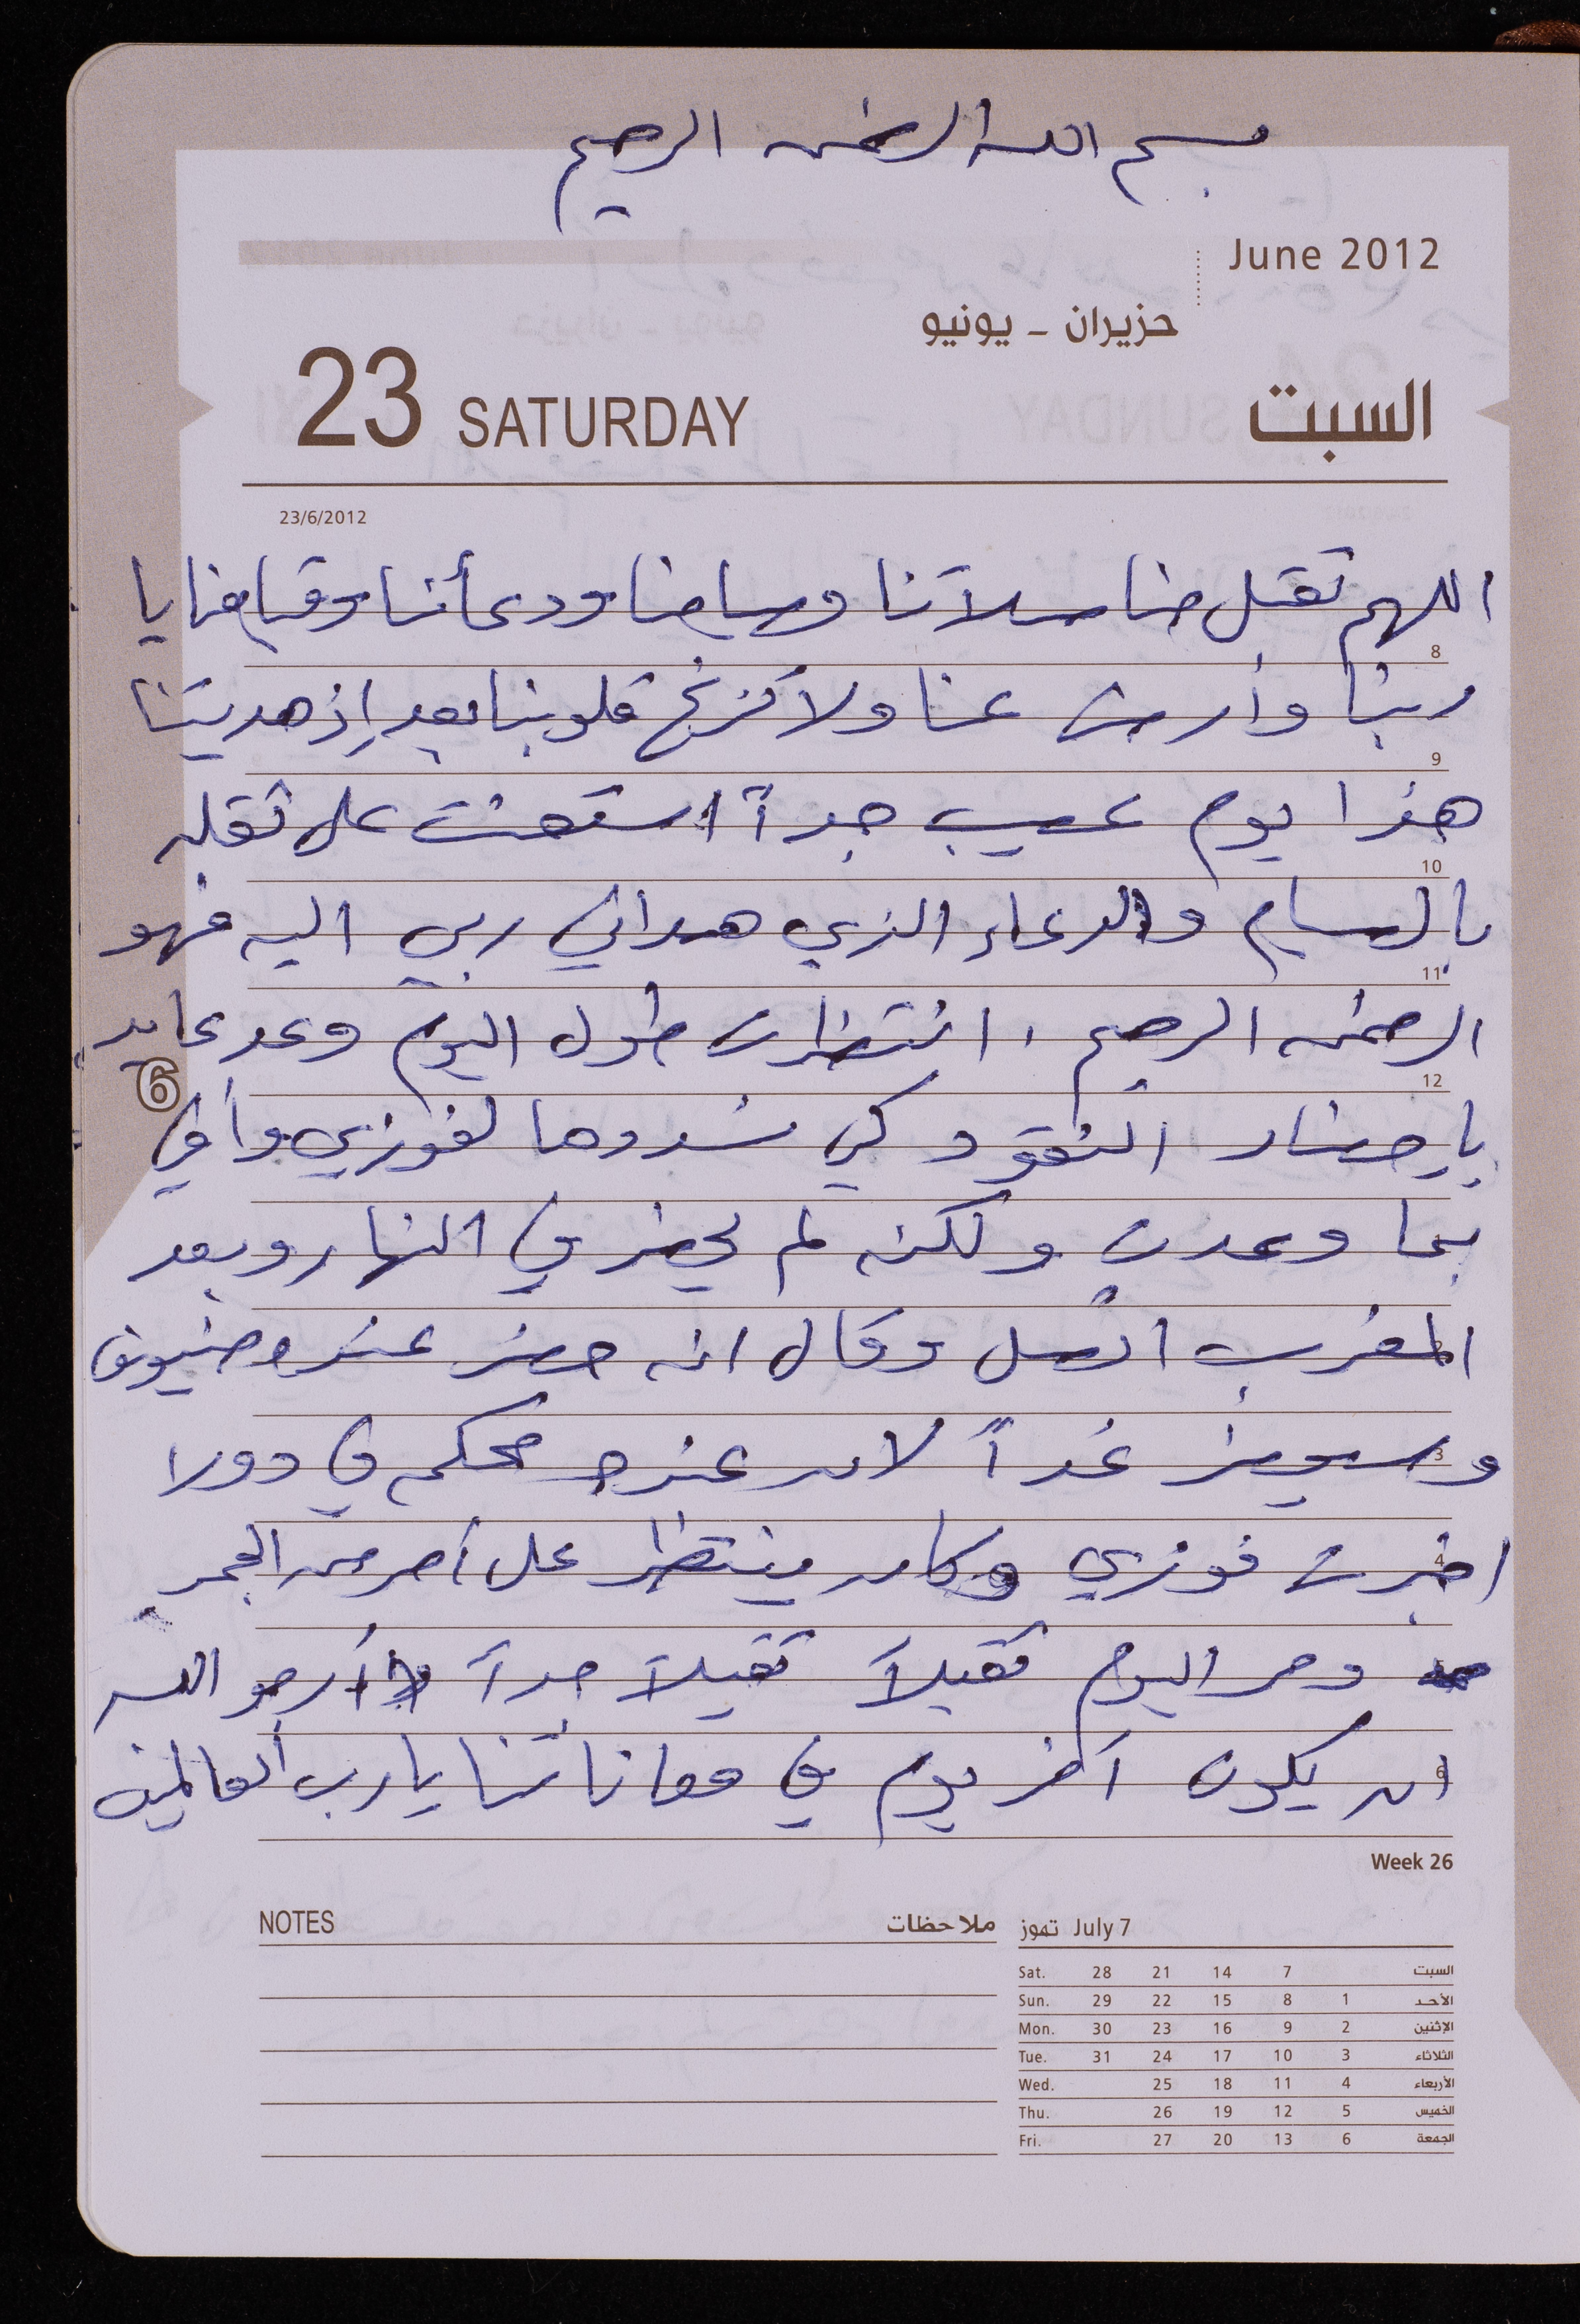 بسم الله الرحمن الرحيم
June 2012
حزيران - يونيو
23 SATURDAY السبت
23/6/2012
اللهم تقبل منا صلاتنا وصيامنا ودعأنا وقيامنا يا
8
ربنا وأرض عنا ولا تزغ قلوبنا بعد إذ هديتنا
9
هذا يوم عصيب جداً استعنت على ثقله
10
بالصيام والدعاء الذي هداني ربي اليه فهو
11
الرحمن الرحيم، انتظرت طول اليوم وعد عابد
6
12
بإحضار النقود كي نسددها لفوزي وأفي
بما وعدت ولكنه لم يحضر في النهار وبعد
المغرب اتصل وقال انه حضر عنده ضيوف
3
وسيحضر غداً لان عنده محكم في دورا
4
اخبرت فوزي وكان ينتظر على أحر من الجمر
ومر اليوم ثقيلاً ثقيلاً جداً أرجو الله
6
ان يكون آخر يوم في معاناتنا يا رب العالمين
Week 26
NOTES ملاحظات
تموز July 7
Sat. 28 21 14 7 السبت
Sun. 29 22 15 8 1 الأحد
Mon. 30 23 16 9 2 الإثنين
Tue. 31 24 17 10 3 الثلاثاء
Wed. 25 18 11 4 الأربعاء
Thu. 26 19 12 5 الخميس
Fri. 27 20 13 6 الجمعة